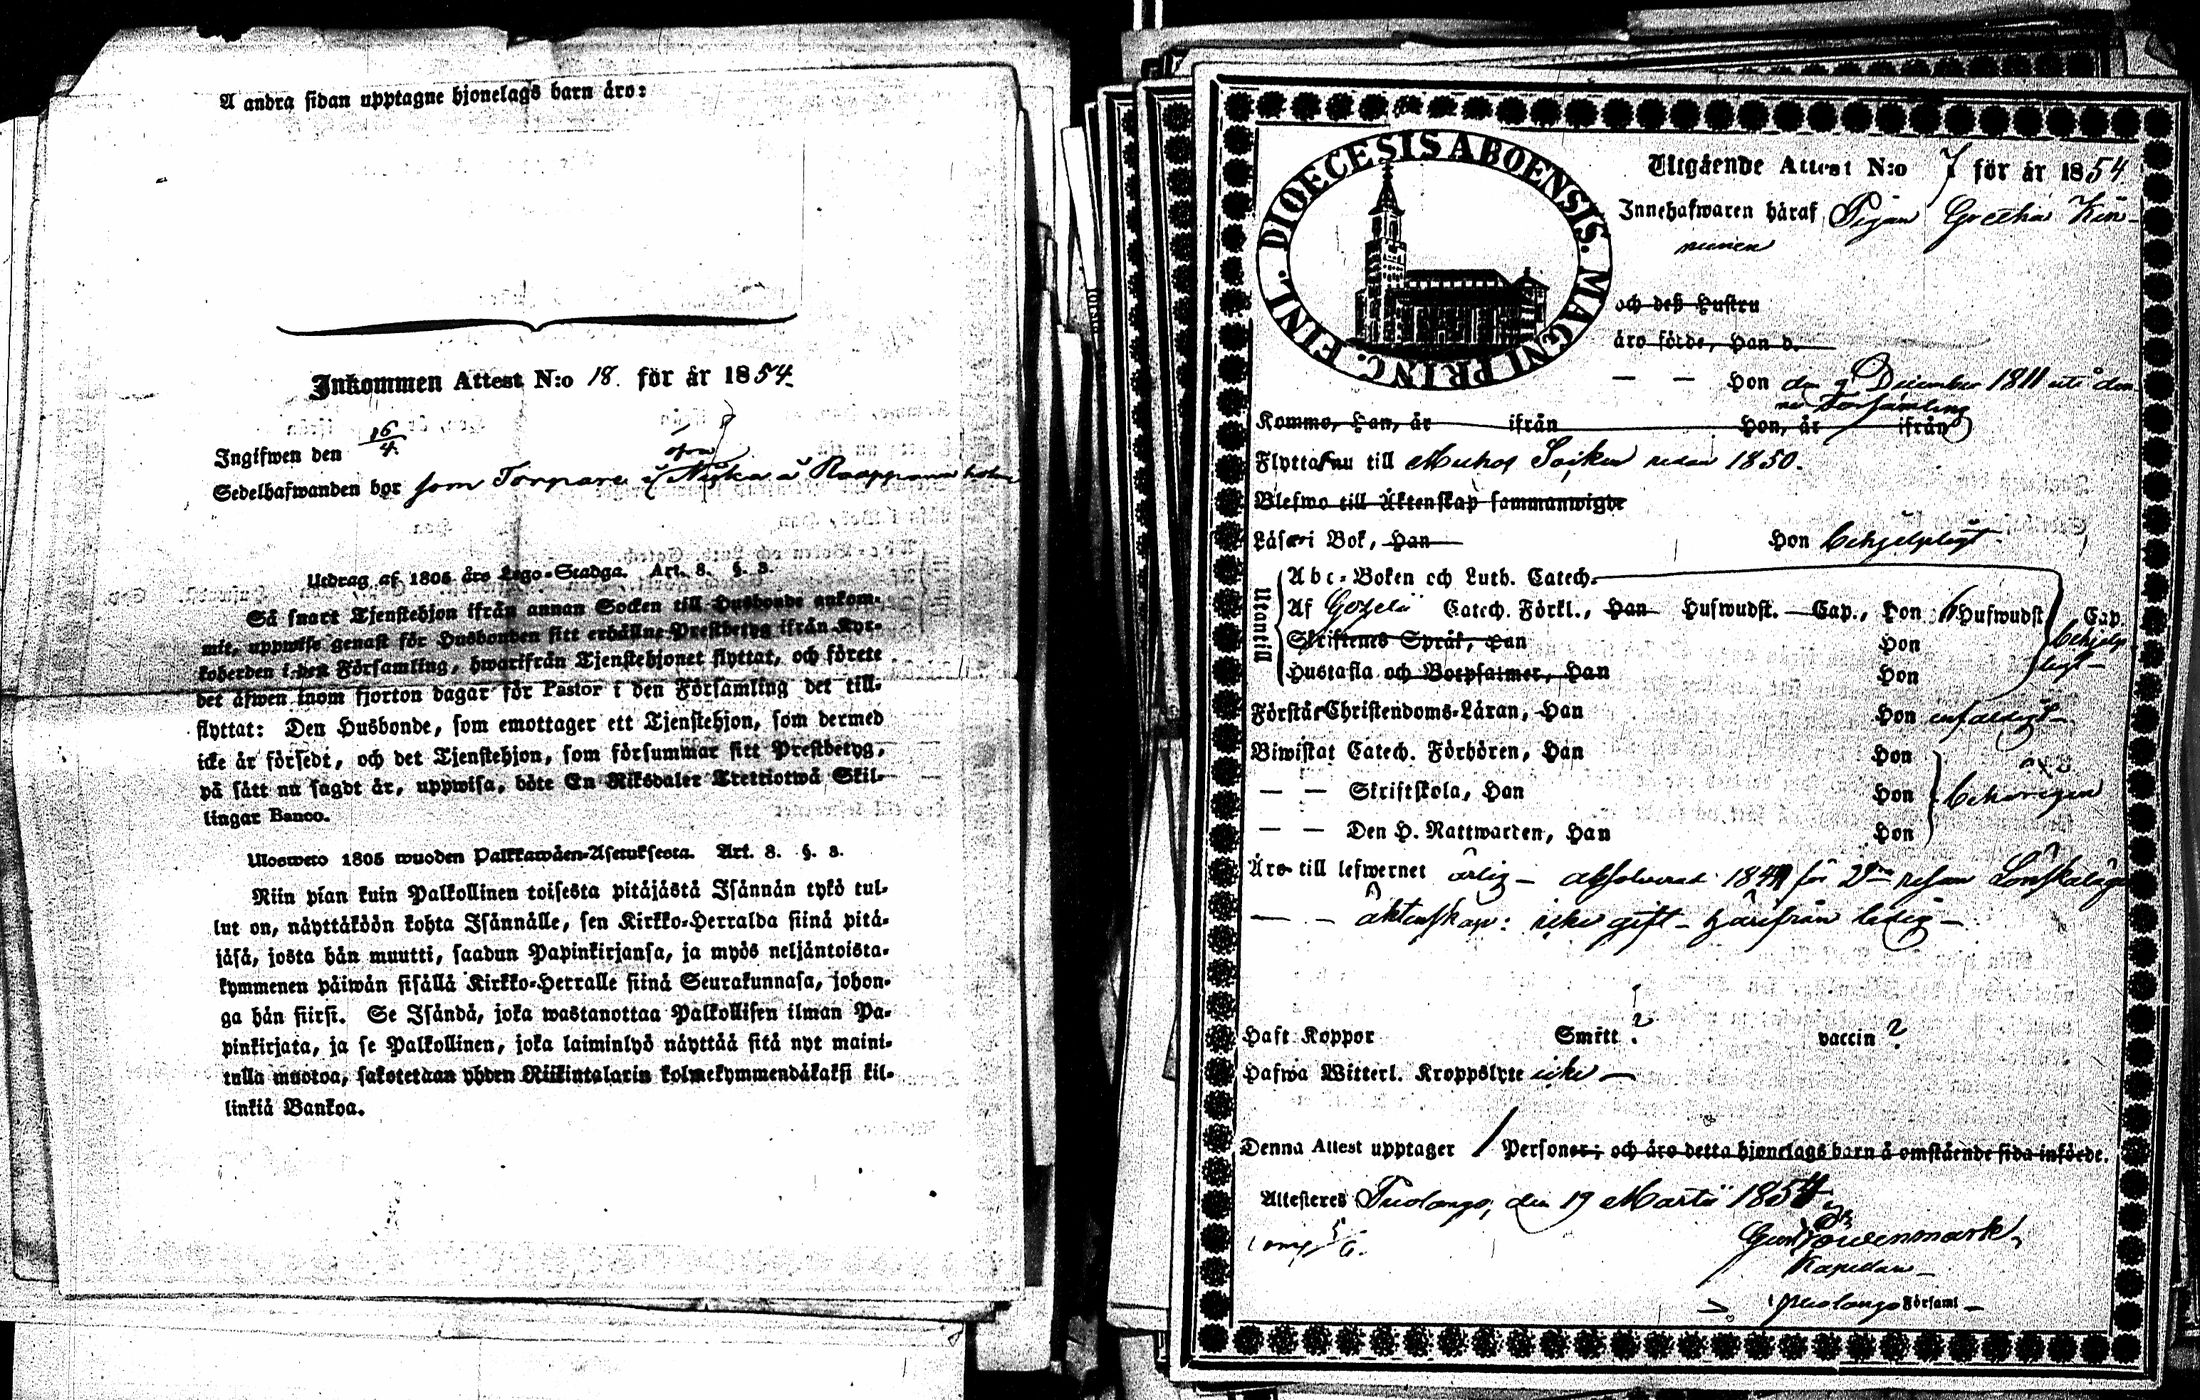 A andra sidan upptagne hjonelags barn äro:
Inkommen Attest N:o 18. för år 1854.
Ingifwen den 16/4
Sedelhafwanden bor som Torpare
Utdrag af 1805 års Lego-Stadga. Art. 8. §. 3.
Så snart Tjenstehjon ifrån annan Socken till Husbonde ankom-
mit, uppwise genast för Husbonden sitt erhållne Prestbetyg ifrån Kyr-
koherden i den Församling, hwarifrån Tjenstehjonet flyttat, och förete
det äfwen inom fjorton dagar för Pastor i den Församling det till-
flyttat: Den Husbonde, som emottager ett Tjenstehjon, som dermed
icke är försedt, och det Tjenstehjon, som försummar sitt Prestbetyg,
på sätt nu sagdt är, uppwisa, böte En Riksdaler Trettiotwå Skil-
lingar Banco.
Ulosweto 1805 wuoden Palkkawäen-Asetuksesta. Art. 8. §. 3.
Niin pian kuin Palkollinen toisesta pitäjästä Isännän tykö tul-
lut on, näyttäköön kohta Isännälle, sen Kirkko-Herralda siinä pitä-
jäsä, josta hän muutti, saadun Papinkirjansa, ja myös neljäntoista-
kymmenen päiwän sisällä Kirkko-Herralle siinä Seurakunnasa, johon-
ga hän siirsi. Se Isändä, joka wastanottaa Palkollisen ilman Pa-
pinkirjata, ja se Palkollinen, joka laiminlyö näyttää sitä nyt maini-
tulla muotoa, sakotetaan yhden Riikintalarin kolmekymmendäkaksi kil-
linkiä Bankoa.
FINL. DIOECESIS ABOENSIS. MAGNI PRINC:
Utgående Attest N:o 7 för år 1854.
Innehafwaren häraf Pigan Greetha Kin-
nunen
och deß Hustru
äro födde, Han d.
— — Hon den 9 December 1811 uti den-
na Församling
Komne, Han, år ifrån Hon, år ifrån
Flytta nu till Muhos Socken sedan 1850.
Blefwo till Äktenskap sammanwigde
Läsa i Bok, Han Hon behjelpligt
Utantill
Abc-Boken och Luth. Catech.
Af Catech. Förkl., Han Hufwudst. Cap., Hon Hufwudst. Cap.
behjelp-
ligt
Skriftenes Språk, Han Hon
Hustafla och Botpsalmer, Han Hon
Förstår Christendoms-Läran, Han Hon enfaldigt
Biwistat Catech. Förhören, Han Hon
— — Skriftskola, Han Hon behörigen
— — Den H. Nattwarden, Han Hon
Äro till lefwernet ärlig — absolverat för 2dra resan Lönskaläge
— — äktenskap: icke gift — härifrån ledig —
Haft Koppor Smitt ? vaccin ?
Hafwa Witterl. Kroppslyte icke —
Denna Attest upptager 1 Personer; och äro detta hjonelags barn å omstående sida införde.
Attesteres den 19 Martii 1854.
Kapellan
Församl —